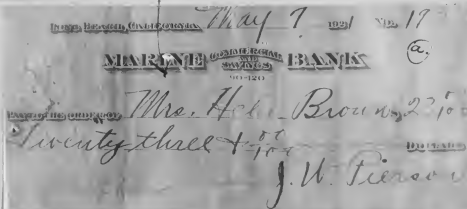 LONG BEACH, CALIFORNIA, May 7 1921 NO. 19
MARINE COMMERCIAL AND SAVINGS BANK
90-120
a
PAY TO THE ORDER OF Mrs. Brown, 23
Twenty three + 00/100 DOLLARS
J. W. Pierson